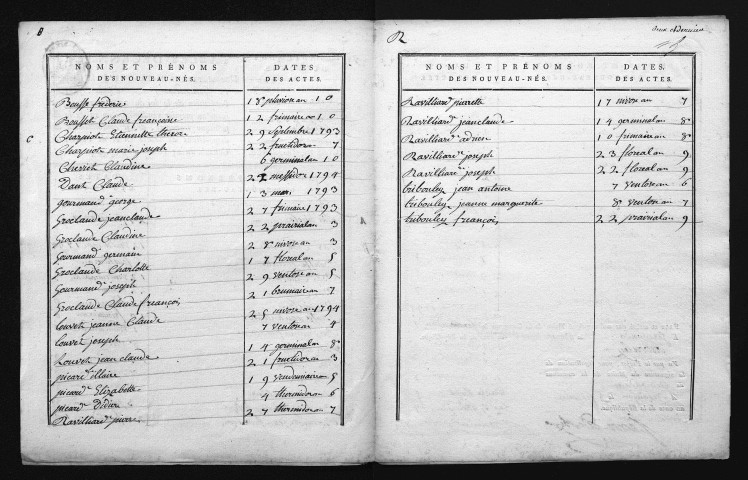 B
NOMS ET PRÉNOMS
DES NOUVEAU-NÉS.
DATES
DES ACTES.
Bousset frederic 18 pluviose an 10
Bousset Claude françoise 12 frimaire an 10
C
Charpiot Etiennette 29 Septembre 1793
Charpiot marie joseph 22 fructidor an 7
Cheviet Claudine 6 germinal an 10
Dant Claude 22 messidor 1794
gourmand george 13 mars 1793
Groclaude jeanclaude 27 frimaire 1793
Groclaude Claudine 22 prairial an 3
Gourmand germain 28 nivose an 3
Groclaude Charlotte 17 floreal an 5
Gourmand joseph 29 ventose an 5
Groclaude Claude françois 21 brumaire an 7
Louvet jeanne Claude 25 nivose an 1794
Louvet joseph 7 ventose an 4
Louvet jean claude 14 germinal an 8
picard illaire 21 fructidor an 3
picard Elizabette 19 vendemiaire an 5
picard Didier 4 thermidor an 6
Ravilliard pierre 27 thermidor an 7
R
NOMS ET PRÉNOMS
DES NOUVEAU-NÉS.
DATES
DES ACTES.
Ravilliard pierrette 17 nivose an 7
Ravilliard jeanclaude 14 germinal an 8
Ravilliard adrien 10 frimaire an 8
Ravilliard joseph 23 floreal an 9
Ravilliard joseph 22 floreal an 9
tribouley jean antoine 7 ventose an 6
tribouley jeanne marguerite 8 ventose an 7
tribouley françois 22 prairial an 9